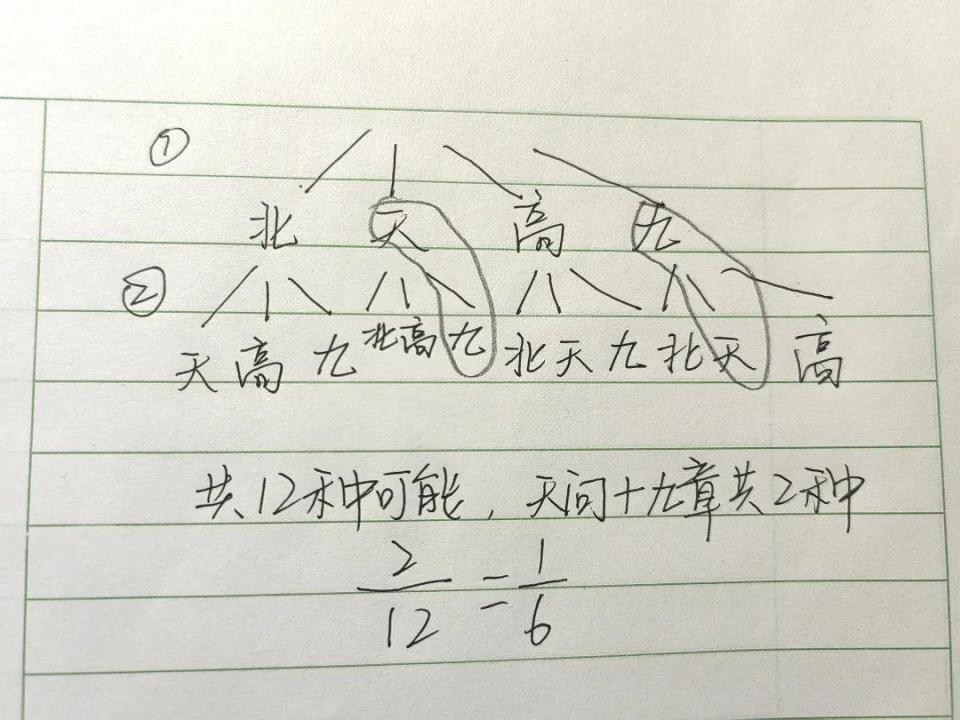 ①
北 天 高 九
②
天 高 九 北 高 九 北 天 九 北 天 高
共12种可能，天问+九章共2种
2/12 = 1/6